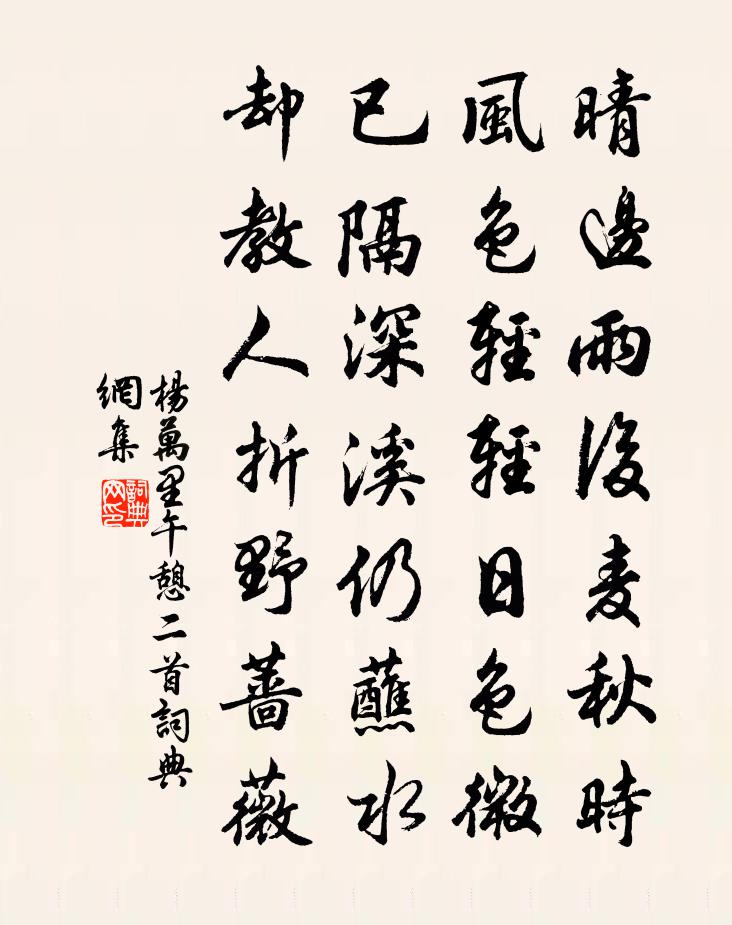 晴邊雨後麦秋時
風色輕輕日色微
已隔深溪仍蘸水
却教人折野薔薇
楊萬里午憩二首詞典
網集
詞典
网印